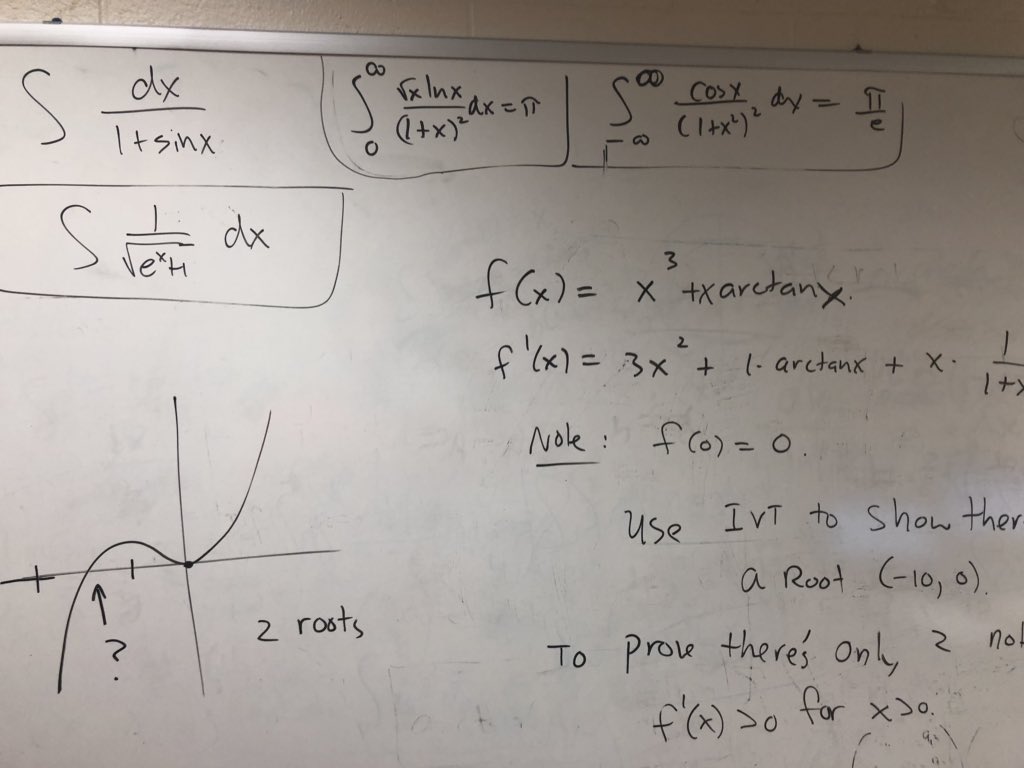 ∫ dx / (1+sinx)
∫₀^∞ √x lnx / (1+x)² dx = π
∫_{-∞}^{∞} cosx / (1+x²)² dx = π/e
∫ 1 / √(eˣ+1) dx
f(x) = x³ + x arctanx.
f'(x) = 3x² + 1· arctanx + x· 1 / 1+x
Note: f(0) = 0.
Use IVT to show ther
a Root (-10, 0).
?
2 roots
To prove there's only 2 not
f'(x) >0 for x>0.